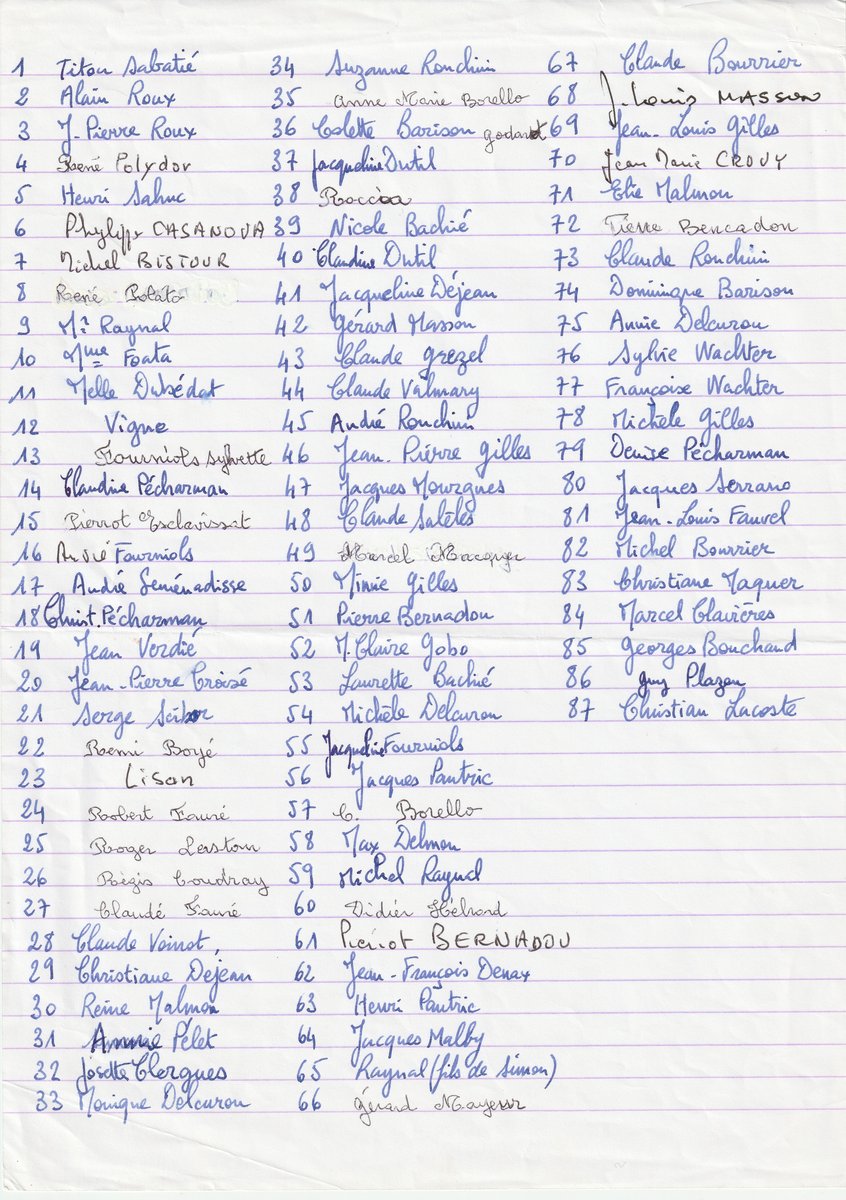 1 Titou Sabatié
2 Alain Roux
3 J. Pierre Roux
4 René Polydor
5 Henri Sahuc
6 Phylippe CASANOVA
7 Michel BISTOUR
8 René Polato
9 Mr Raynal
10 Mme Foata
11 Melle Dubédat
12 Vigne
13 Fourniols Sylvette
14 Claudine Pécharman
15 Pierrot Esclavissat
16 André Fourniols
17 André Seménadisse
18 Christ. Pécharman
19 Jean Verdié
20 Jean-Pierre Croisé
21 Serge
22 Remi Boyé
23 Lison
24 Robert Fauré
25 Roger Lerstom
26 Régis Coudray
27 Claudé Fauré
28 Claude Voinot,
29 Christiane Dejean
30 Reine Malmon
31 Annie Pélet
32 Josette Clergues
33 Monique Delcuron
34 Suzanne Ronchini
35 Anne Marie Borello
36 Colette Barison godard
37 Jacqueline Dutil
38
39 Nicole Bachié
40 Claudine Dutil
41 Jacqueline Déjean
42 Gérard Masson
43 Claude Grezel
44 Claude Valmary
45 André Ronchini
46 Jean-Pierre Gilles
47 Jacques Mourgues
48 Claude Salèles
49 Marcel
50 Minie Gilles
51 Pierre Bernadou
52 M. Claire Gobo
53 Laurette Bachié
54 Michèle Delcuron
55 Jacqueline Fourniols
56 Jacques Pautric
57 C. Borello
58 Max Delmon
59 Michel Raynal
60 Didier Hébrard
61 Pierrot BERNADOU
62 Jean-François Denax
63 Henri Pautric
64 Jacques Malby
65 Raynal (fils de Simon)
66 Gérard
67 Claude Bourrier
68 J. Louis MASSON
69 Jean-Louis Gilles
70 Jean Marie CROUY
71 Elie Malmon
72 Pierre Bencadon
73 Claude Ronchini
74 Dominique Barison
75 Annie Delcuron
76 Sylvie Wachter
77 Françoise Wachter
78 Michèle Gilles
79 Denise Pécharman
80 Jacques Serrano
81 Jean-Louis Fauvel
82 Michel Bourrier
83 Christiane Maquer
84 Marcel Clavières
85 Georges Bouchaud
86 guy Plazen
87 Christian Lacoste